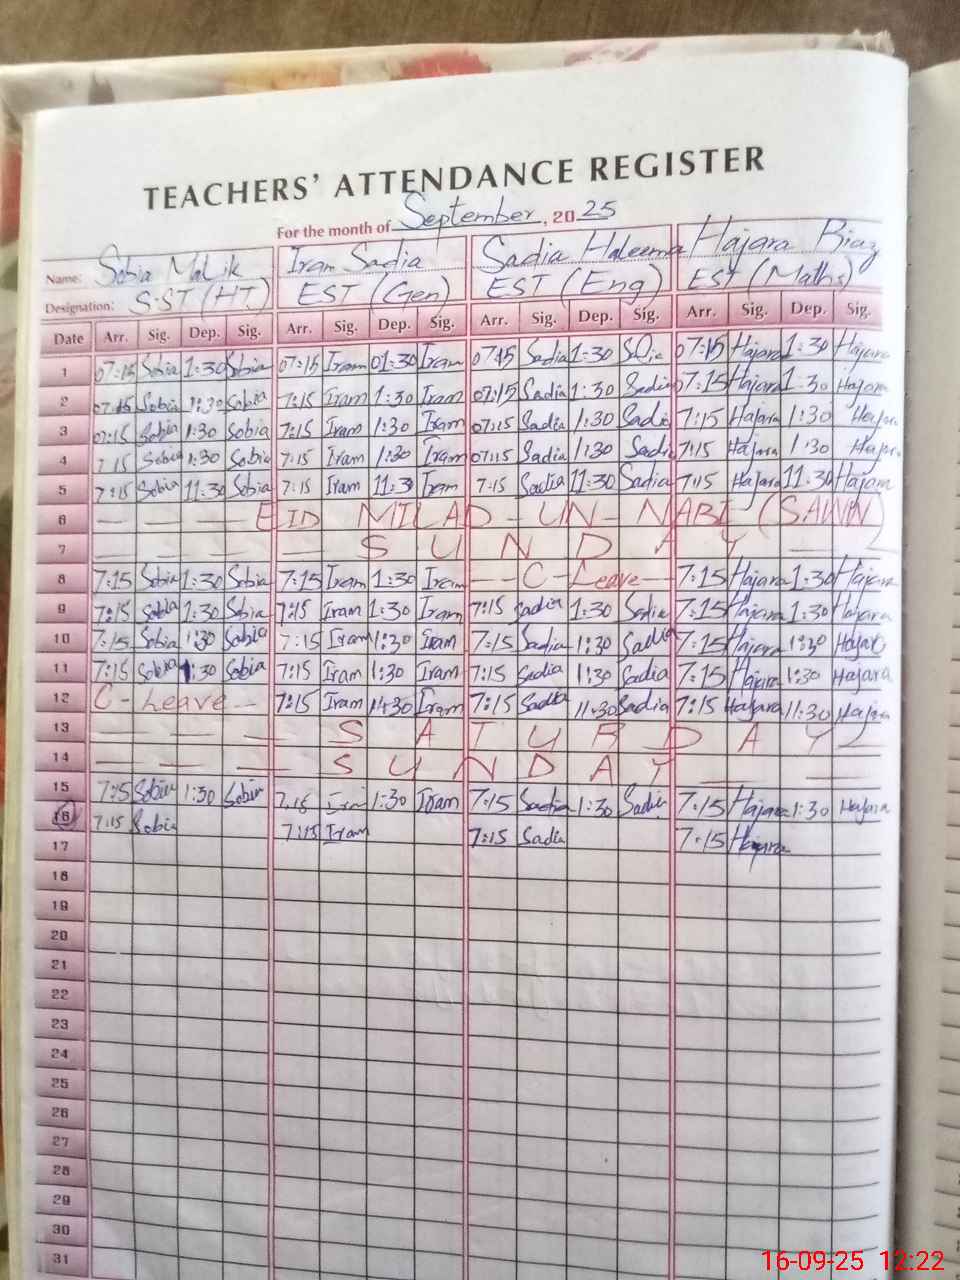 TEACHERS' ATTENDANCE REGISTER
For the month of September, 2025
Name: Sobia Malik Iram Sadia Sadia Haleema Hajara Riaz
Designation: S.ST (HT) EST (Gen) EST (Eng) EST (Maths)
Date Arr. Sig. Dep. Sig. Arr. Sig. Dep. Sig. Arr. Sig. Dep. Sig. Arr. Sig. Dep. Sig.
1 07:15 Sobia 1:30 Sobia 07:15 Iram 01:30 Iram 07:15 Sadia 1:30 07:15 Hajara 1:30 Hajara
2 07:15 Sobia 1:30 Sobia 7:15 Iram 1:30 Iram 07:15 Sadia 1:30 Sadia 7:15 Hajara 1:30 Hajara
3 07:15 Sobia 1:30 Sobia 7:15 Iram 1:30 Iram 07:15 Sadia 1:30 Sadia 7:15 Hajara 1:30 Hajara
4 7:15 Sobia 1:30 Sobia 7:15 Iram 1:30 Iram 07:15 Sadia 1:30 Sadia 7:15 Hajara 1:30 Hajara
5 7:15 Sobia 11:30 Sobia 7:15 Iram 11:3 Iram 7:15 Sadia 11:30 Sadia 7:15 Hajara 11:30 Hajara
6 — — — — EID MILAD - UN - NABI (SAWW)
7 — — — — — S U N D A Y — —
8 7:15 Sobia 1:30 Sobia 7:15 Iram 1:30 Iram - - C - Leave - - 7:15 Hajara 1:30 Hajara
9 7:15 Sobia 1:30 Sobia 7:15 Iram 1:30 Iram 7:15 Sadia 1:30 Sadia 7:15 Hajara 1:30 Hajara
10 7:15 Sobia 1:30 Sobia 7:15 Iram 1:30 Iram 7:15 Sadia 1:30 Sadia 7:15 Hajara 1:30 Hajara
11 7:15 Sobia 1:30 Sobia 7:15 Iram 1:30 Iram 7:15 Sadia 1:30 Sadia 7:15 Hajara 1:30 Hajara
12 C - Leave - - 7:15 Iram 11:30 Iram 7:15 Sadia 11:30 Sadia 7:15 Hajara 11:30 Hajara
13 — — — — S A T U R D A Y —
14 — — — — S U N D A Y — —
15 7:15 Sobia 1:30 Sobia 7:15 Iram 1:30 Iram 7:15 Sadia 1:30 Sadia 7:15 Hajara 1:30 Hajara
16 7:15 Sobia 7:15 Iram 7:15 Sadia 7:15 Hajara
17
18
19
20
21
22
23
24
25
26
27
28
29
30
31
16-09-25 12:22